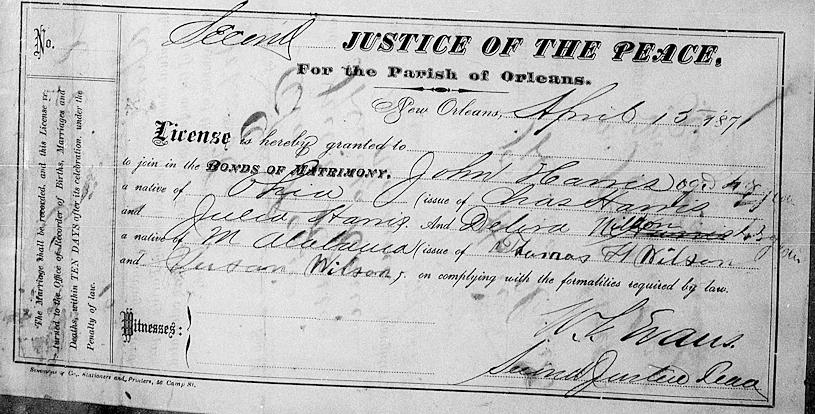 No.
The Marriage shall be recorded, and this License re-
turned to the Office of Recorder of Births, Marriages and
Deaths, within TEN DAYS after its celebration, under the
Penalty of law.
Second JUSTICE OF THE PEACE,
For the Parish of Orleans.
New Orleans, April 13 1871
License is hereby granted to
to join in the BONDS OF MATRIMONY. John Harris aged
a native of Ohio (issue of Chas Harris
and Julia Harris. And Debra Wilson
a native of Alabama (issue of Thomas H Wilson
and Susan Wilson), on complying with the formalities required by law.
Witnesses:
Evans.
Second Justice Peace
& Co., Stationers and Printers, Camp St.